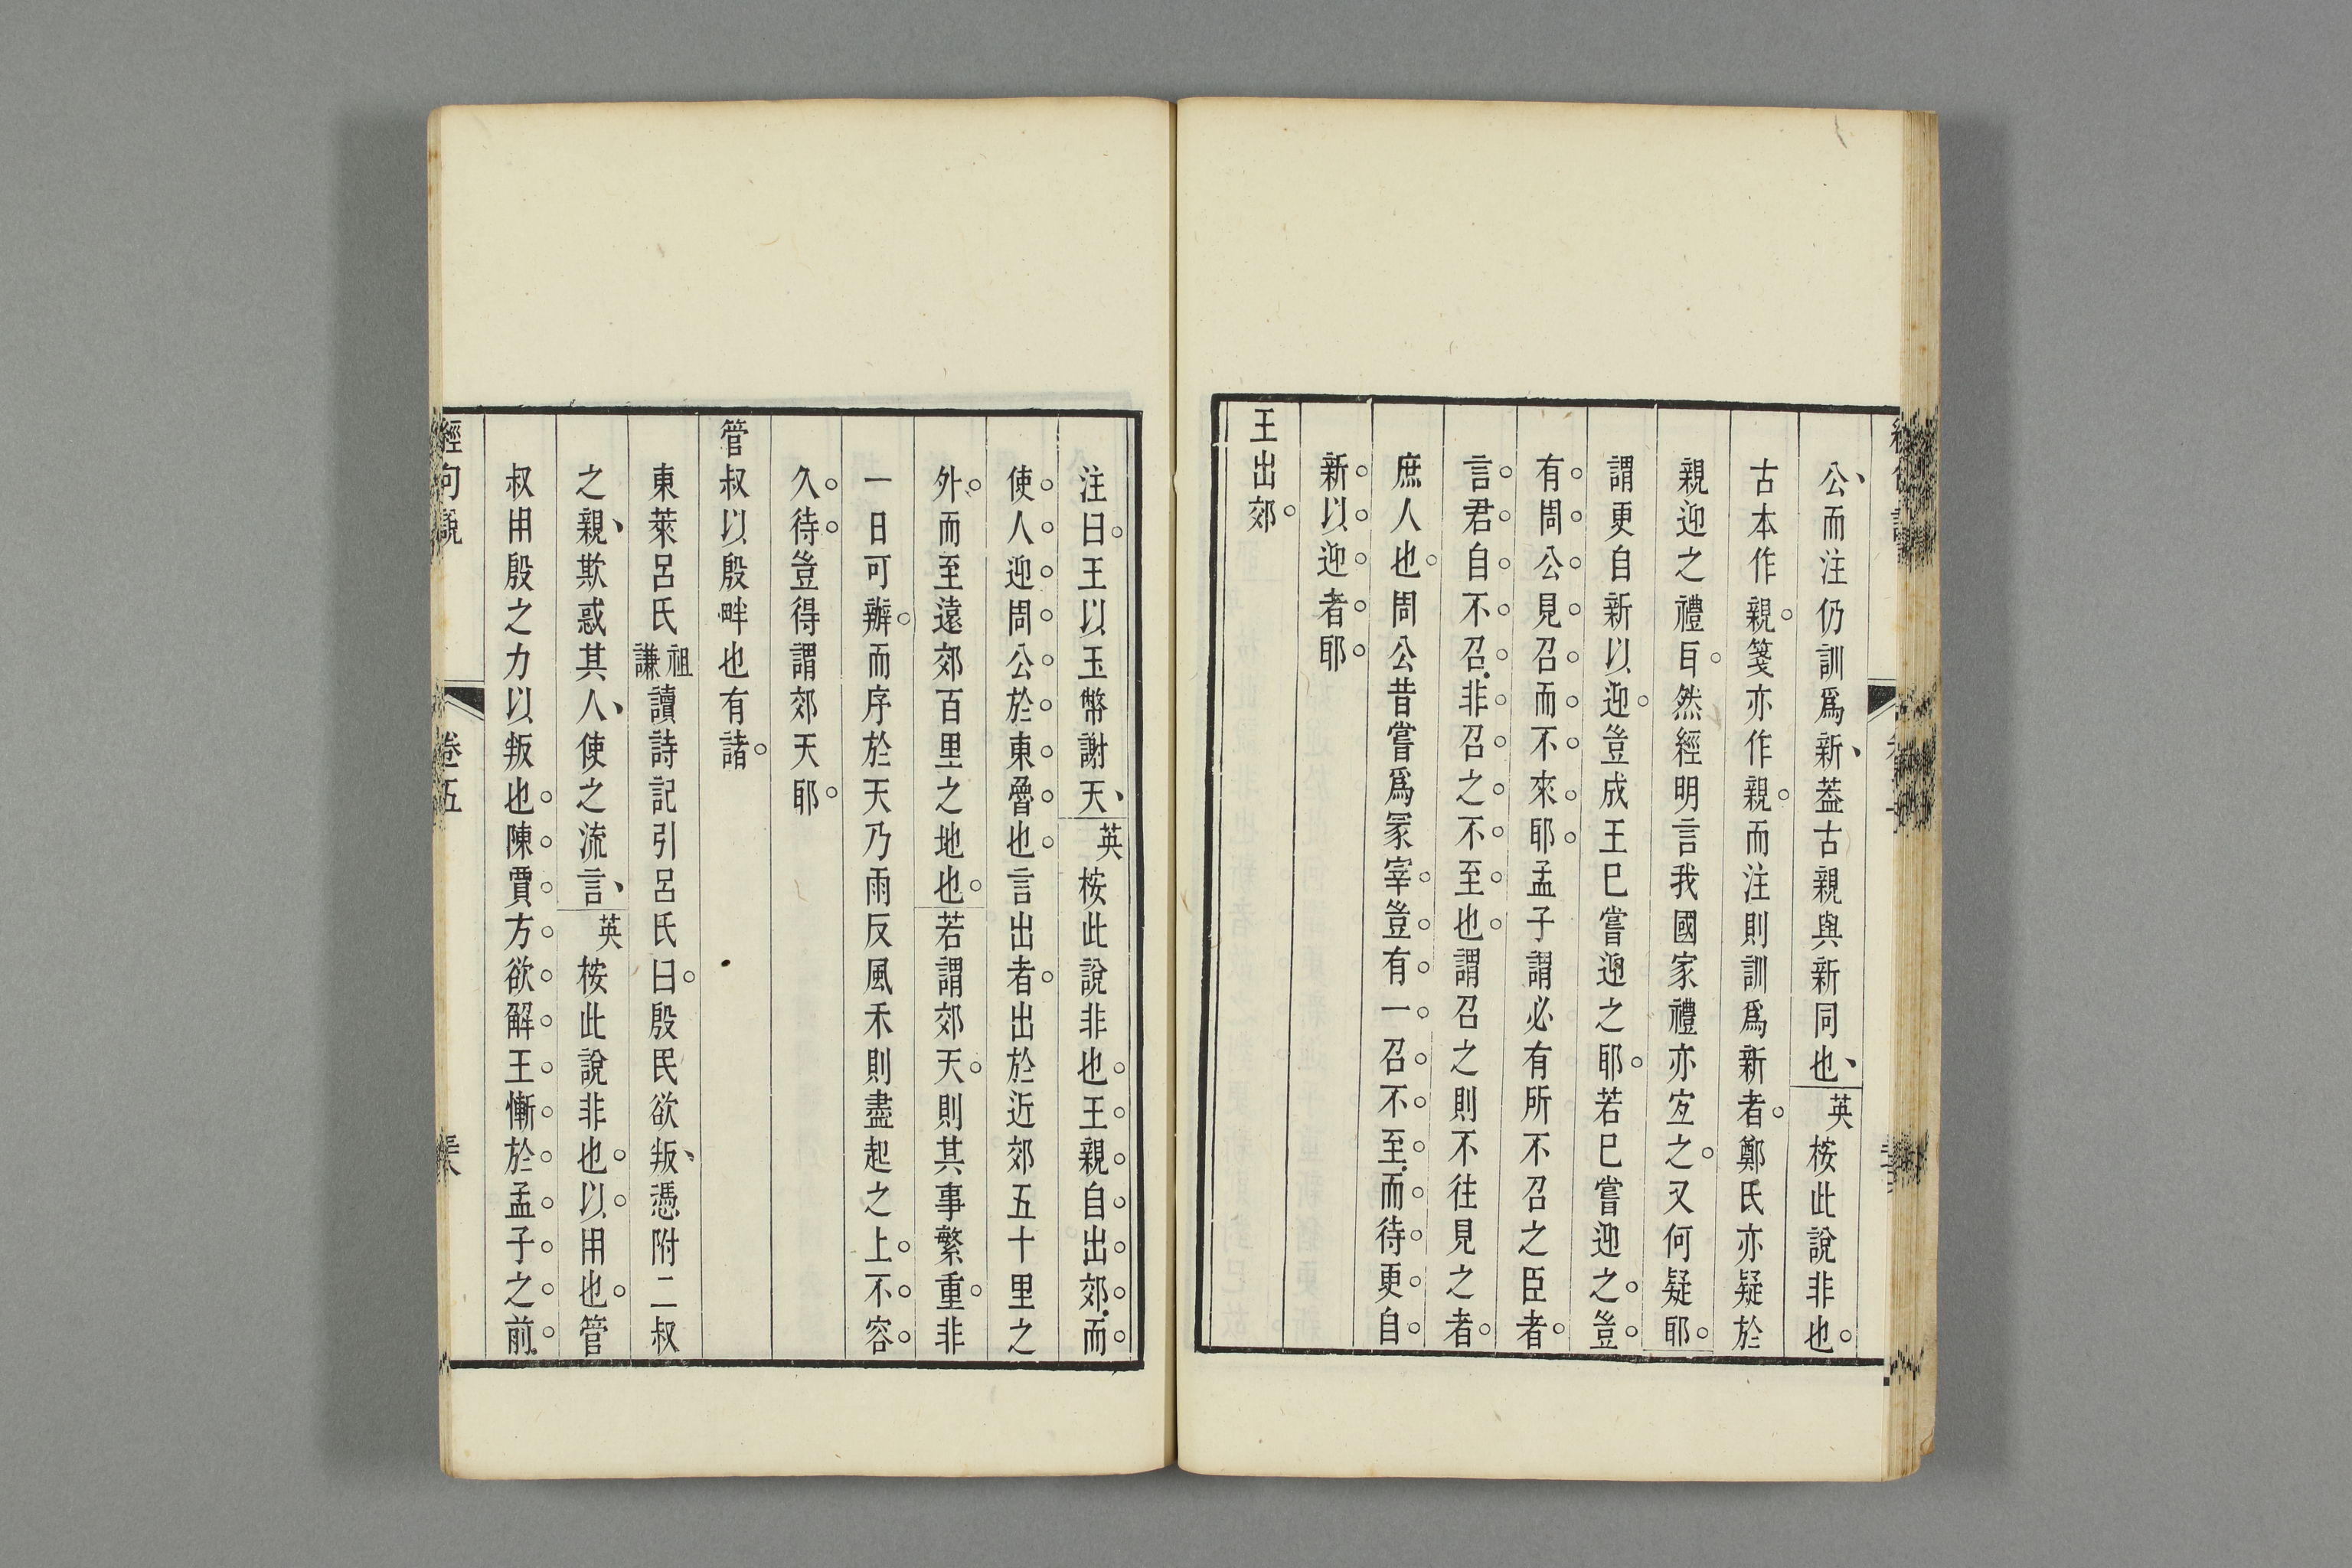 公而注仍訓爲新葢古親與新同也英桉此說非也
古本作親箋亦作親而注則訓爲新者鄭氏亦疑於
親迎之禮㠯然經明言我國家禮亦宐之又何疑耶
謂更自新以迎豈成王巳嘗迎之耶若巳嘗迎之豈
有周公見召而不來耶孟子謂必有所不召之臣者
言君自不召非召之不至也謂召之則不往見之者
庶人也周公昔嘗爲冢宰豈有一召不至而待更自
新以迎者耶
王出郊
注曰王以玉幣謝天英桉此說非也王親自出郊而
使人迎周公於東魯也言出者出於近郊五十里之
外而至遠郊百里之地也若謂郊天則其事繁重非
一日可辦而序於天乃雨反風禾則盡起之上不容
久待豈得謂郊天耶
管叔以殷畔也有諸
東萊呂氏祖謙讀詩記引呂氏曰殷民欲叛憑附二叔
之親欺惑其人使之流言英桉此說非也以用也管
叔用殷之力以叛也陳賈方欲解王慚於孟子之前
經句說 卷五